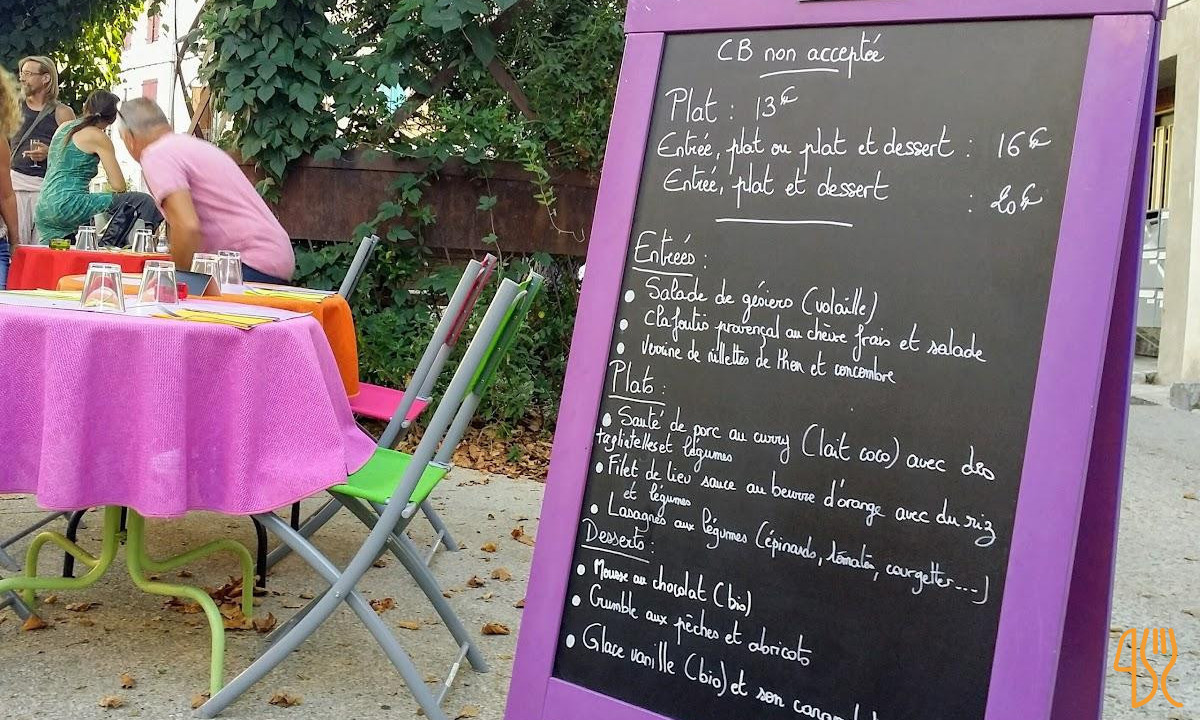 CB non acceptée
Plat : 13€
Entrée, plat ou plat et dessert : 16€
Entrée, plat et dessert : 20€
Entrées :
• Salade de gésiers (volaille)
• Clafoutis provençal au chèvre frais et salade
• Verrine de rillettes de thon et concombre
Plats :
• Sauté de porc au curry (lait coco) avec des
tagliatelles et légumes
• Filet de lieu sauce au beurre d'orange avec du riz
et légumes
• Lasagnes aux légumes (épinards, tomates, courgettes...)
Desserts :
• Mousse au chocolat (bio)
• Crumble aux pêches et abricots
• Glace vanille (bio) et son